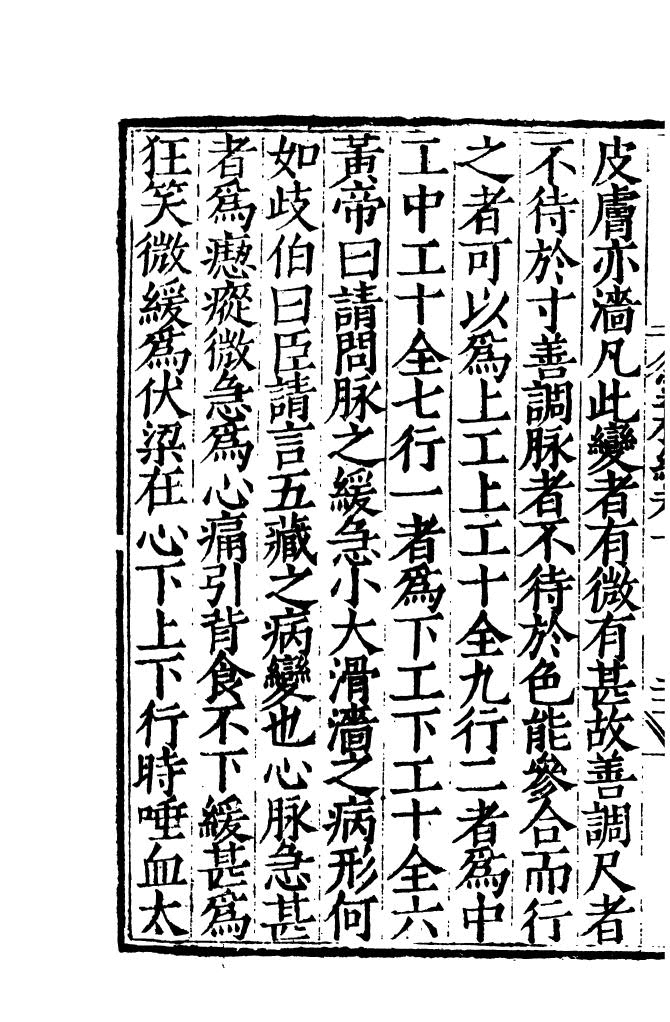 皮膚亦濇凡此變者有微有甚故善調尺者
不待於寸善調脉者不待於色能參合而行
之者可以爲上工上工十全九行二者爲中
工中工十全七行一者爲下工下工十全六
黃帝曰請問脉之緩急小大滑濇之病形何
如歧伯曰臣請言五藏之病變也心脉急甚
者爲瘛瘲微急爲心痛引背食不下緩甚爲
狂笑微緩爲伏梁在心下上下行時唾血太